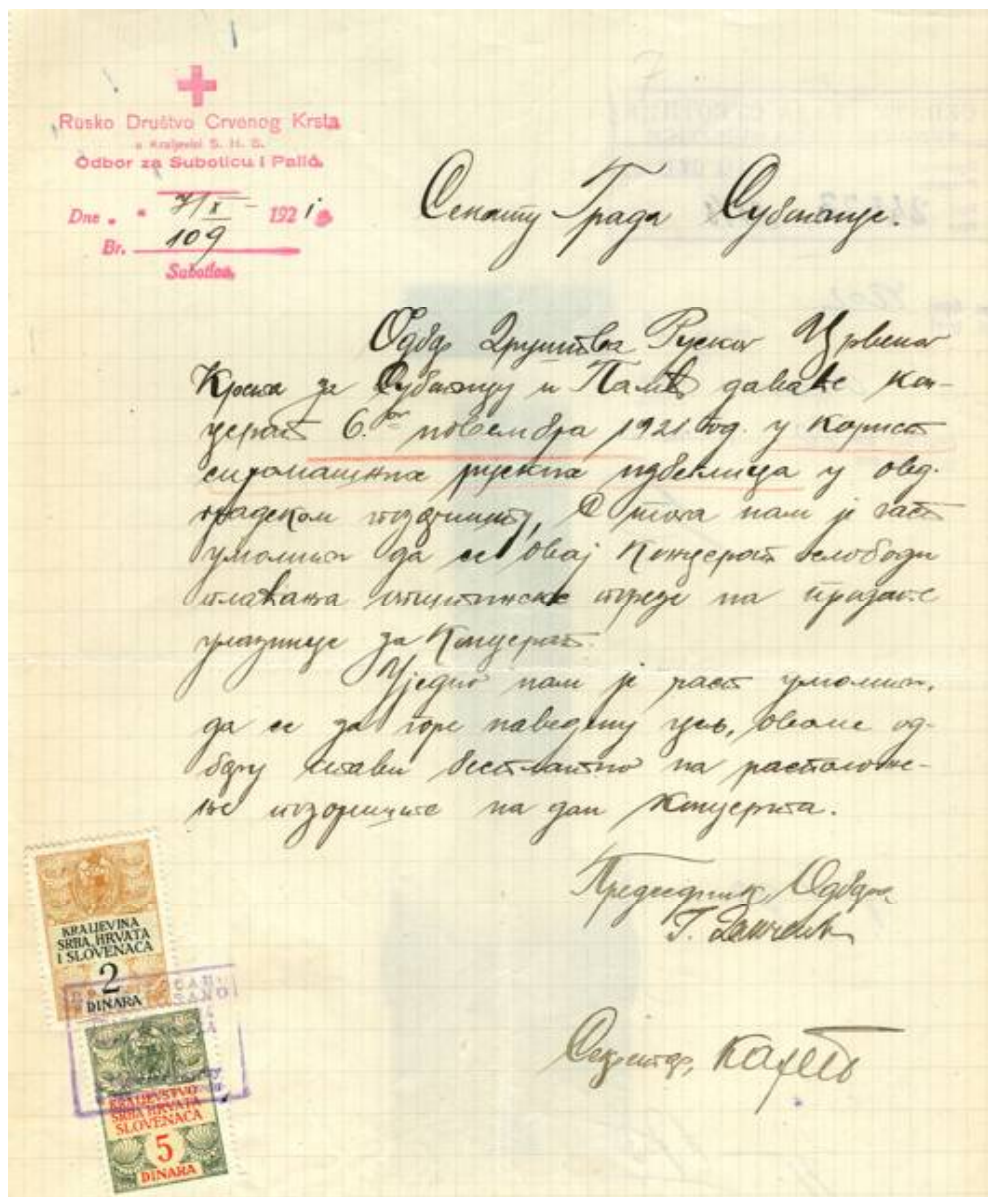 Rusko Društvo Crvenog Krsta
u Kraljevini S. H. S.
Odbor za Suboticu i Palić.
Dne 7/X 1921
Br. 109
Subotica,
Сенату Града Суботице.
Одбор Друштва Руског Црвеног
Крста за Суботицу и Палић даваће кон-
церат 6.ог новембра 1921 год. у корист
сиромашних руских избеглица у овд.
градском позоришту, С тога нам је част
умолити да се овај Концерат ослободи
плаћања општинске на продате
улазнице за Концерат.
Уједно нам је част умолити,
да се за горе наведену цељ, овоме од-
бору стави бесплатно на расположе-
ње позориште на дан Концерта.
Председник Одбора
Секретар,
KRALJEVINA
SRBA, HRVATA
I SLOVENACA
2
DINARA
KRALJEVSTVO
SRBA HRVATA
SLOVENACA
5
DINARA